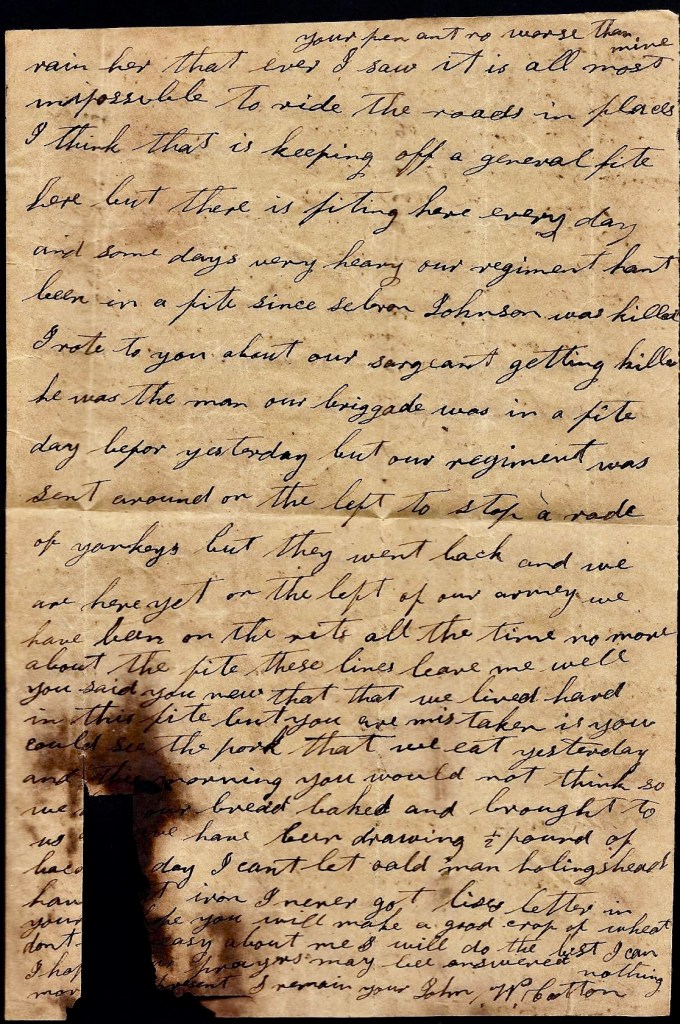 your pen ant no worse than mine
rain her that ever I saw it is all most
impossible to ride the roads in places
I think that is keeping off a general fite
here but there is fiting here every day
and some days very heavy our regiment hant
been in a fite since sebron Johnson was killed
I rote to you about our sargeant getting killed
he was the man our briggade was in a fite
day befor yesterday but our regiment was
sent around on the left to stop a rade
of yankeys but they went back and we
are here yet on the left of our armey we
have been on the rite all the time no more
about the fite these lines leave me well
you said you new that that we lived hard
in this fite but you are mistaken is you
could see the pork that we eat yesterday
and this morning you would not think so
we our bread baked and brought to
us we have been drawing ½ pound of
day I cant let oald man holingsheads
have iron I never got lises letter in
your you will make a good crop of wheat
dont easy about me I will do the best I can
I hope prayers may bee answered nothing
more I remain your John W. Cotton